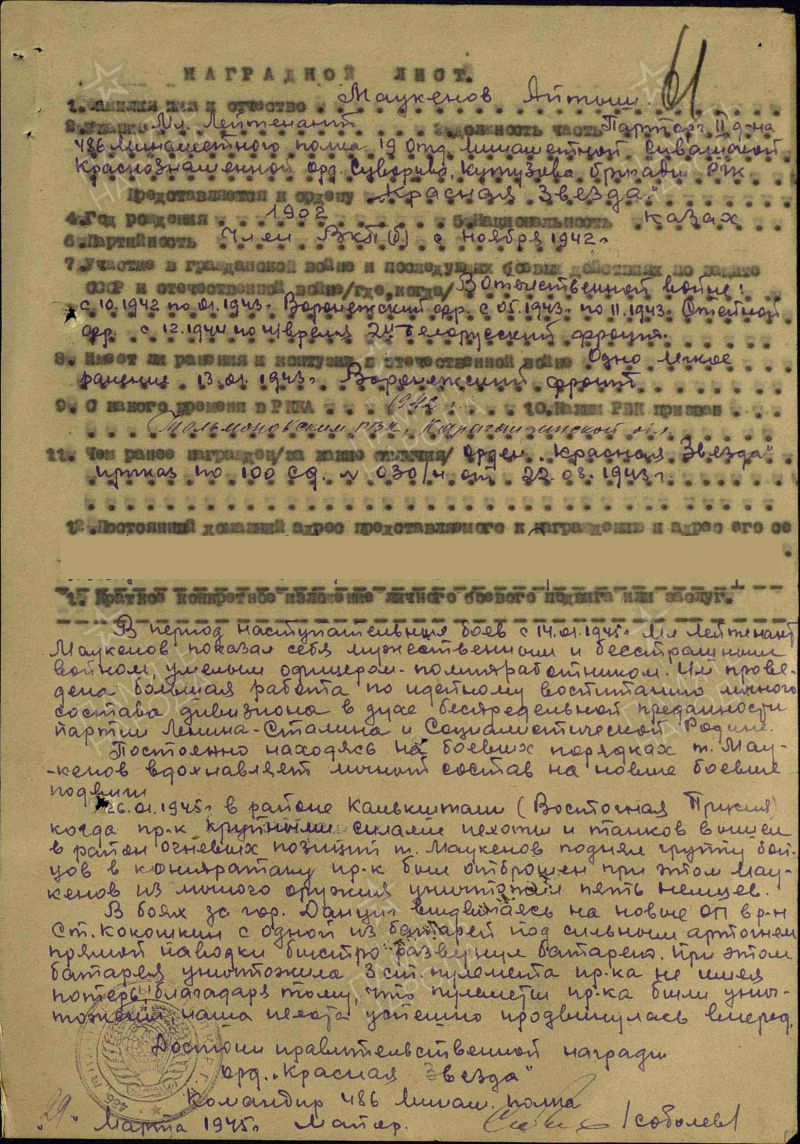 61
НАГРАДНОЙ ЛИСТ.
1. Фамилия имя и отчество Маукенов Айтыш.
2. Звание Мл. Лейтенант 3. Должность часть Парторг II д-на
486 Минаметного полка 19 отд. Минаметной Сивашской
Краснознаменной орд. Суворова, Кутузова бригады РГК
Представляется к ордену „Красная Звезда"
4. Год рождения 1902 5. Национальность Казах
6. Партийность Член ВКП(б) с ноября 1942г
7. Участие в гражданской войне и последующих боевых действиях по защите
СССР и отечественной войне /где, когда/ В Отечественной войне:
с 10.1942 по 01.1943г. Воронежский фр. с 05.1943 по 11.1943 Степной
фр. с 12.1944 по н/время 2й Белорусский фронт.
8. Имеет ли ранения и контузии в отечественной войне Одно легкое
ранение 13.01.1943г Воронежский фронт
9. С какого времени в РККА 1942г. 10. Каким РВК призван
РВК, Карагандинской обл
11. Чем ранее награжден /за какие отличия/ Орден „Красная Звезда"
приказ по 100 СД. № 030/н от 22.03.1943г.
12. Постоянный домашний адрес представляемого к награждению и адрес его се
1. Краткое конкретное изложение личного боевого подвига или заслуг.
В период наступательных боев с 14.01.1945г Мл Лейтенант
Маукенов показал себя мужественным и бесстрашным
войном, умелым офицером-политработником. Им прове-
дена большая работа по идейному воспитанию личного
состава дивизиона в духе беспредельной преданности
партии Ленина-Сталина и Социалистической Родине.
Постоянно находясь на боевых порядках т. Мау-
-кенов вдохнавляет личный состав на новые боевые
подвиги
26.01.1945г в районе (Восточная Прусия)
когда пр-к крупными силами пехоты и танков вышел
в район огневых позиций т. Маукенов поднял группу бой-
цов в контратаку пр-к был отброшен при этом Мау-
кенов из личного оружия уничтожил пять немцев.
В боях за гор. Данциг выдвигаясь на новые ОП в р-н
Ст. Кокошкин с одной из батарей под сильным артогнем
прямой наводки быстро развернул батарею. При этом
батарея уничтожила 3 ст. пулемета пр-ка не имея
потерь, благодаря тому, что пулеметы пр-ка были унич-
тожены наша пехота успешно продвинулась вперед.
Достоин правительственной награды
орд. „Красная Звезда"
Командир 486 Минам. полка
„29" Марта 1945г Майор. /Соболев/